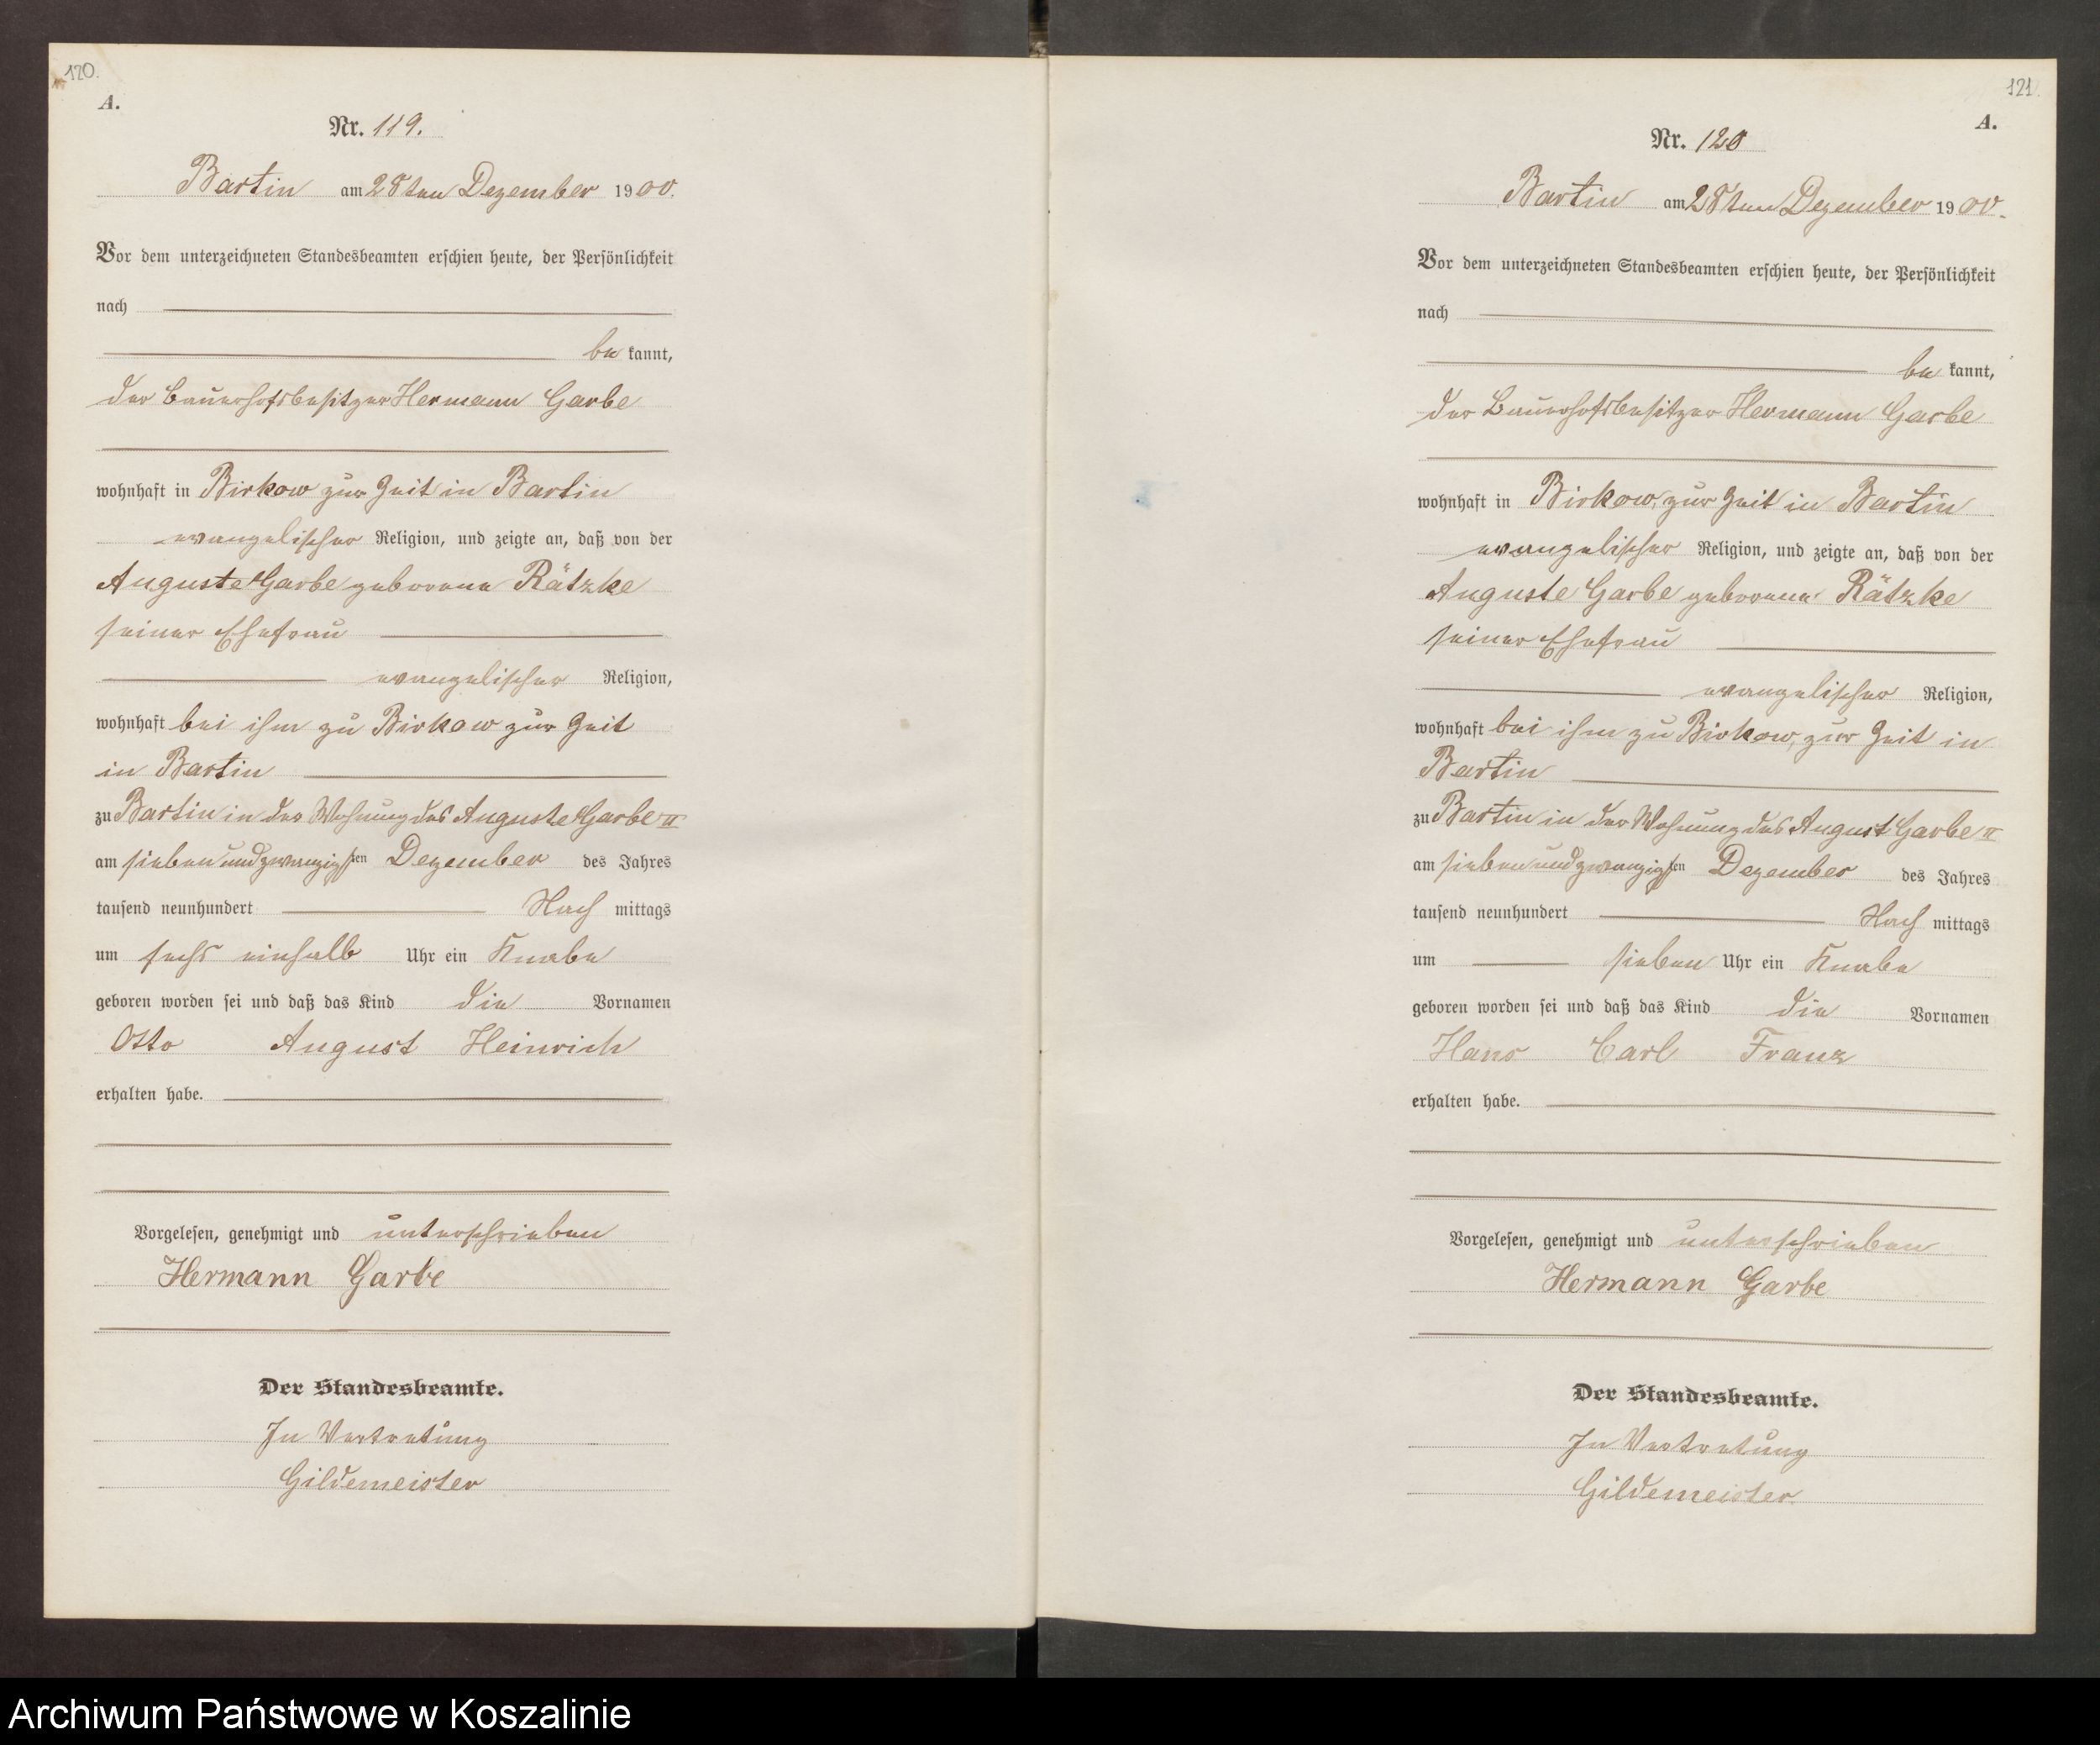 120.
A.
Nr. 119.
Bartin am 28ten Dezember 1900.
Vor dem unterzeichneten Standesbeamten erschien heute, der Persönlichkeit
nach
be kannt,
der Bauerhofsbesitzer Hermann Garbe
wohnhaft in Birkow zur Zeit in Bartin
evangelischer Religion, und zeigte an, daß von der
Auguste Garbe geborene Rätzke
seiner Ehefrau
evangelischer Religion,
wohnhaft bei ihm zu Birkow zur Zeit
in Bartin
zu Bartin in der Wohnung des Auguste Garbe II
am sieben und zwanzigsten Dezember des Jahres
tausend neunhundert Nach mittags
um sechs einhalb Uhr ein Knabe
geboren worden sei und daß das Kind die Vornamen
Otto August Heinrich
erhalten habe.
Vorgelesen, genehmigt und unterschrieben
Hermann Garbe
Der Standesbeamte.
In Vertretung
Gildemeister
121.
A.
Nr. 120
Bartin am 28ten Dezember 1900.
Vor dem unterzeichneten Standesbeamten erschien heute, der Persönlichkeit
nach
be kannt,
der Bauerhofsbesitzer Hermann Garbe
wohnhaft in Birkow, zur Zeit in Bartin
evangelischer Religion, und zeigte an, daß von der
Auguste Garbe geborene Rätzke
seiner Ehefrau
evangelischer Religion,
wohnhaft bei ihm zu Birkow, zur Zeit in
Bartin
zu Bartin in der Wohnung des August Garbe II
am sieben und zwanzigsten Dezember des Jahres
tausend neunhundert Nach mittags
um sieben Uhr ein Knabe
geboren worden sei und daß das Kind die Vornamen
Hans Carl Franz
erhalten habe.
Vorgelesen, genehmigt und unterschrieben
Hermann Garbe
Der Standesbeamte.
In Vertretung
Gildemeister
Archiwum Państwowe w Koszalinie